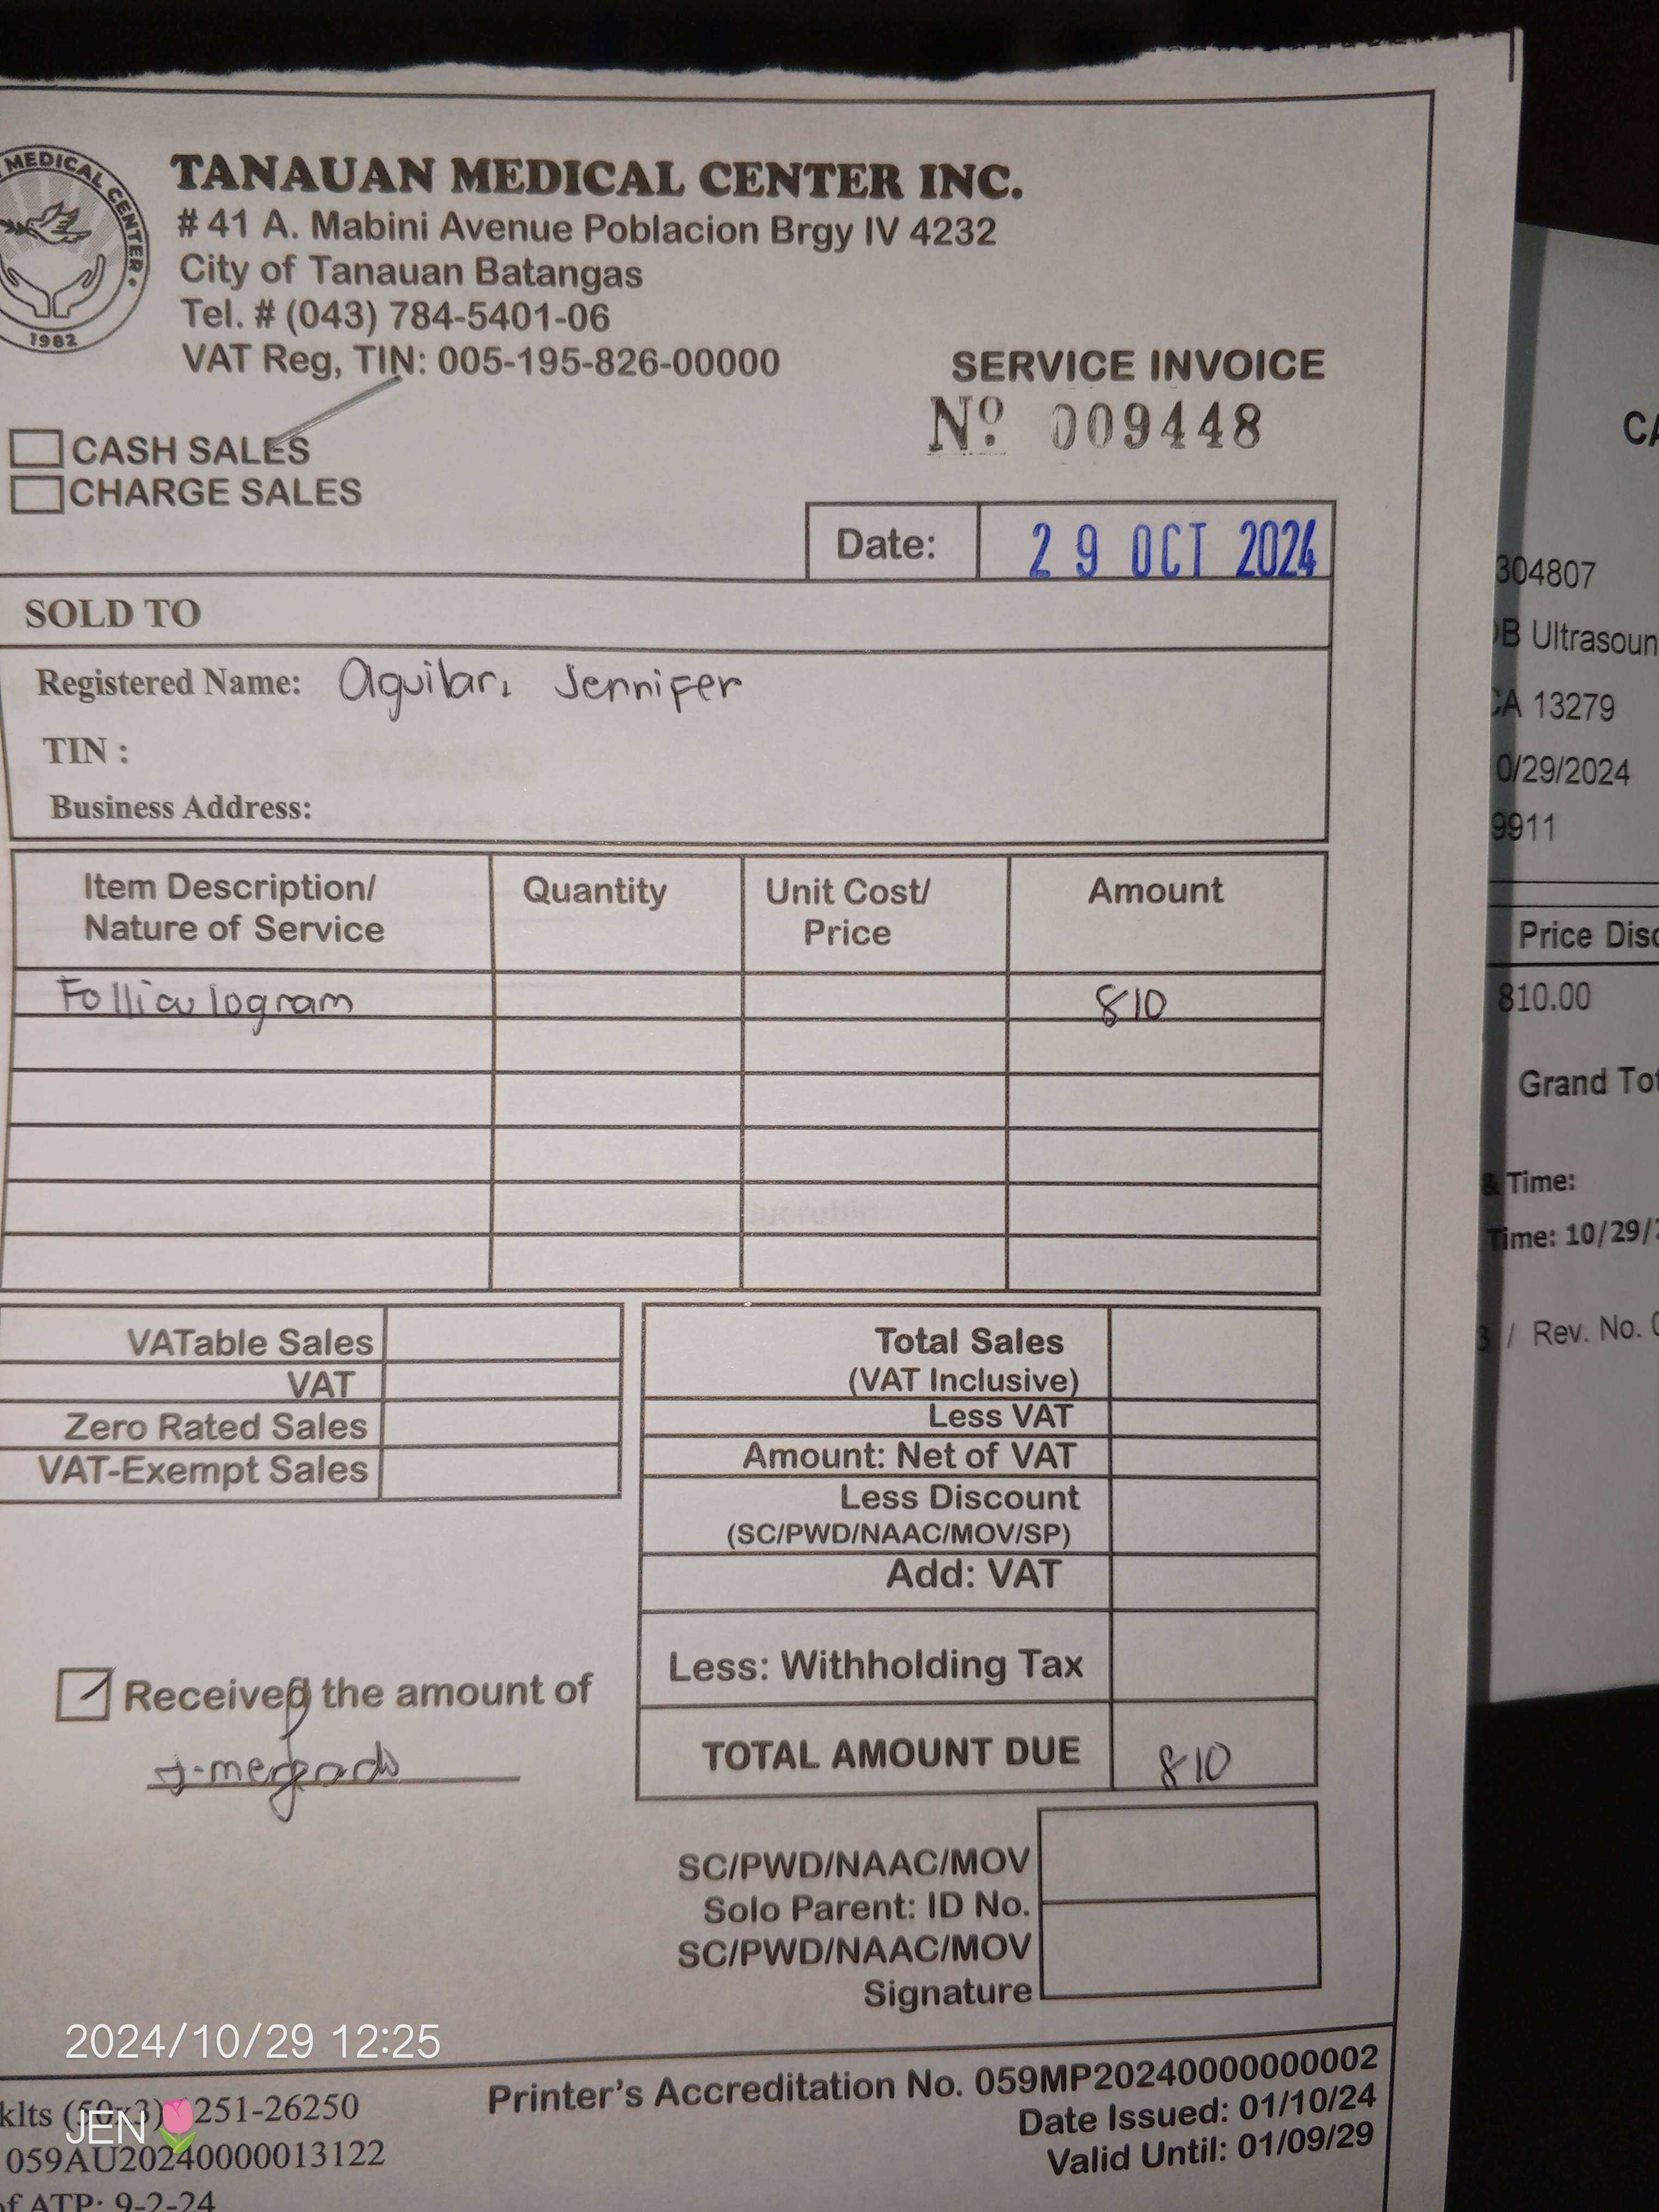 MEDICAL CENTER
1982
TANAUAN MEDICAL CENTER INC.
# 41 A. Mabini Avenue Poblacion Brgy IV 4232
City of Tanauan Batangas
Tel. # (043) 784-5401-06
VAT Reg, TIN: 005-195-826-00000
SERVICE INVOICE
Nº 009448
CASH SALES
CHARGE SALES
Date: 29 OCT 2024
SOLD TO
Registered Name: Aguilar, Jennifer
TIN :
Business Address:
Item Description/ Nature of Service Quantity Unit Cost/ Price Amount
Folliculogram 810
VATable Sales
VAT
Zero Rated Sales
VAT-Exempt Sales
Total Sales
(VAT Inclusive)
Less VAT
Amount: Net of VAT
Less Discount
(SC/PWD/NAAC/MOV/SP)
Add: VAT
Less: Withholding Tax
TOTAL AMOUNT DUE 810
Received the amount of
SC/PWD/NAAC/MOV
Solo Parent: ID No.
SC/PWD/NAAC/MOV
Signature
2024/10/29 12:25
JEN
251-26250
059AU20240000013122
ATP: 9-2-24
Printer's Accreditation No. 059MP20240000000002
Date Issued: 01/10/24
Valid Until: 01/09/29
CA
304807
B Ultrasoun
CA 13279
0/29/2024
9911
Price Disc
810.00
Grand Tot
& Time:
Time: 10/29/
/ Rev. No. 0